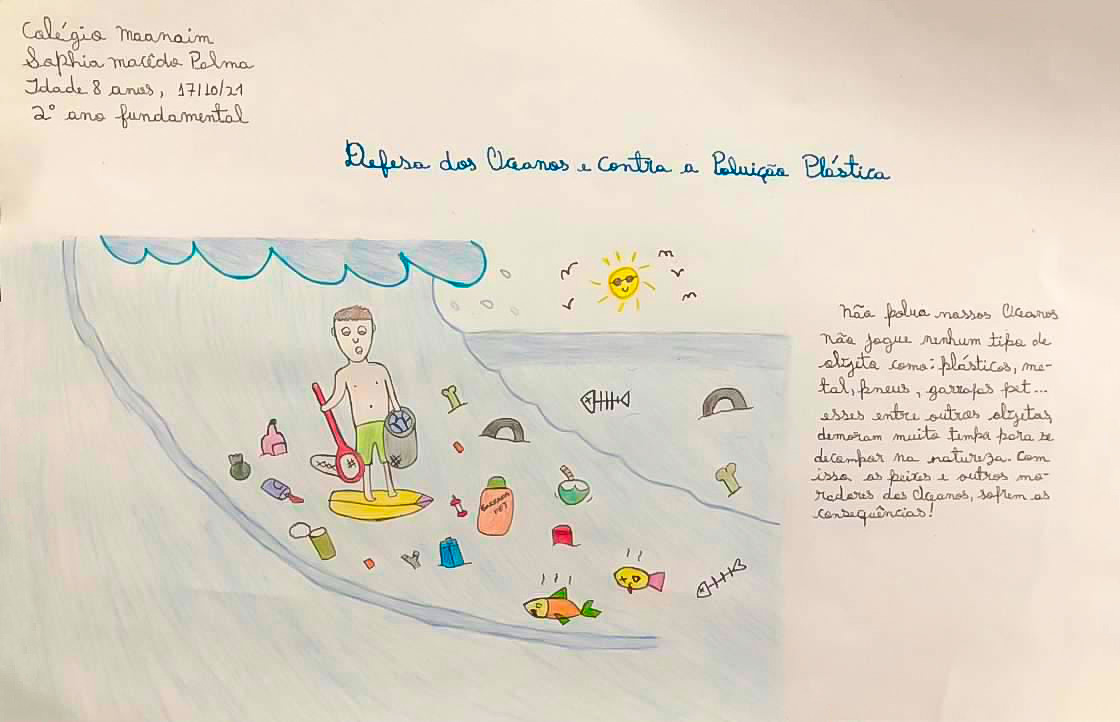 Colégio Maanaim
Sophia macêdo Palma
Idade 8 anos, 17/10/21
2º ano fundamental
Defesa dos Oceanos e contra a Poluição Plástica
Não polua nossos Oceanos
não jogue nenhum tipo de
objeto como: plásticos, me-
tal, pneus, garrafas pet...
esses entre outros objetos
demoram muito tempo para se
decompor na natureza. Com
isso os peixes e outros mo-
radores dos Oceanos, sofrem as
consequências!
GARRAFA
PET